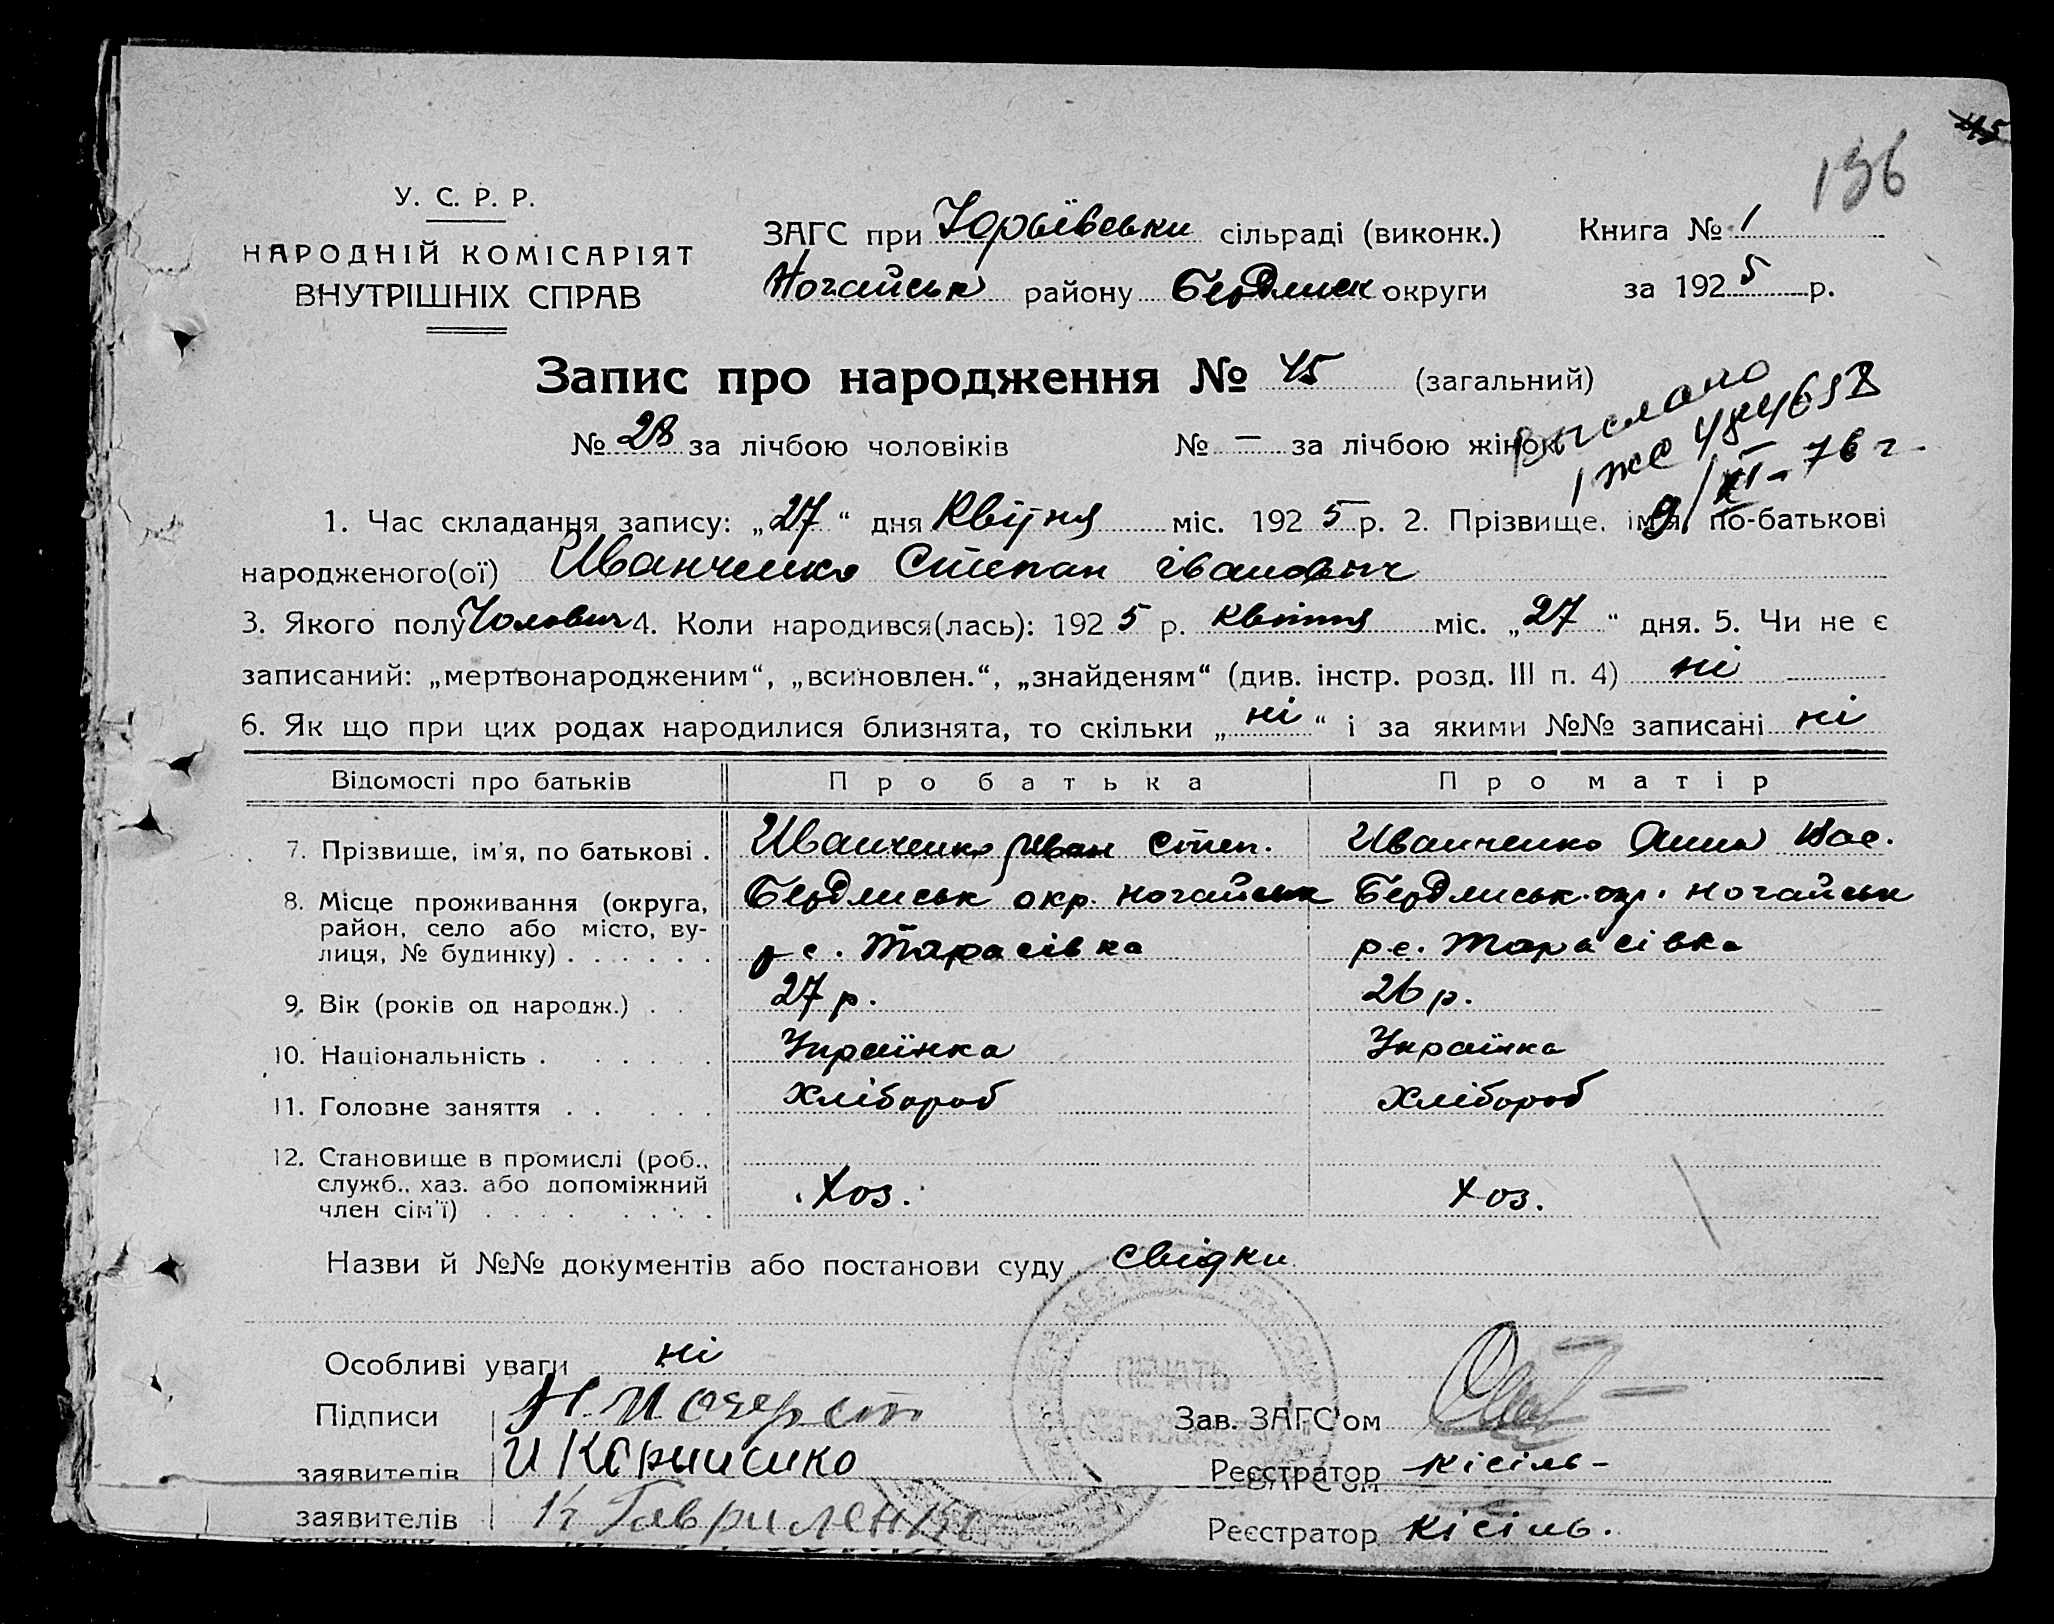 45
156
У. С. Р. Р.
НАРОДНІЙ КОМІСАРІЯТ
ВНУТРІШНІХ СПРАВ
ЗАГС при Юрьївськи сільраді (виконк.) Книга № 1
Ногайськ району Бердянск округи за 1925 р.
Запис про народження № 45 (загальний)
№ 28 за лічбою чоловіків № — за лічбою жінок
выслано
1 жс 4844658
9/XI-76 г
1. Час складання запису: „27“ дня Квітня міс. 1925 р. 2. Прізвище, ім'я, по-батькові
народженого(ої) Иванченко Степан івановыч
3. Якого полу Чолович 4. Коли народився(лась): 1925 р. квітня міс. „27“ дня. 5. Чи не є
записаний: „мертвонародженим“, „всиновлен.“, „знайденям“ (див. інстр. розд. III п. 4) ні
6. Як що при цих родах народилися близнята, то скільки „ні“ і за якими №№ записані ні
Відомості про батьків Про батька Про матір
7. Прізвище, ім'я, по батькові . Иванченко Иван Степ. Иванченко Анна Вас.
8. Місце проживання (округа, Бердянськ окр. Ногайськ Бердянськ. окр. Ногайськ
район, село або місто, ву-
лиця, № будинку) . . . . . . р с. Тарасівка р с. Тарасівка
9. Вік (років од народж.) . . 27 р. 26 р.
10. Національність . . . . . . Українка Українка
11. Головне заняття . . . . . Хлібороб Хлібороб
12. Становище в промислі (роб.,
служб., хаз. або допоміжний Хоз. Хоз.
член сім'ї) . . . . . . . .
Назви й №№ документів або постанови суду Свідки
Особливі уваги ні
ПЕЧАТЬ
Підписи Зав. ЗАГС'ом
заявителів Реєстратор Кісіль-
заявителів К Гавриленко Реєстратор Кісіль.